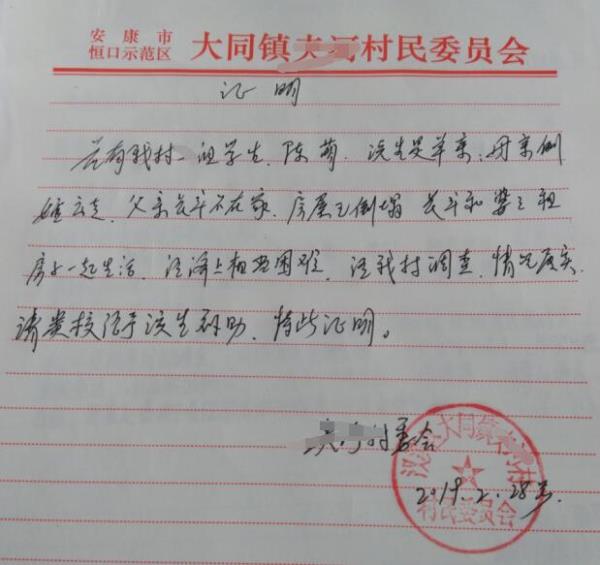 安康市
恒口示范区
大同镇 村民委员会
证明
兹有我村一组学生陈萌，该生是单亲，母亲
去世，父亲长年不在家，房屋已倒塌，长年和 租
房子一起生活，经济上相当困难，经我村调查，情况属实，
请贵校给予该生补助，特此证明。
村委会
大同镇 村
村民委员会
2019.2.28号